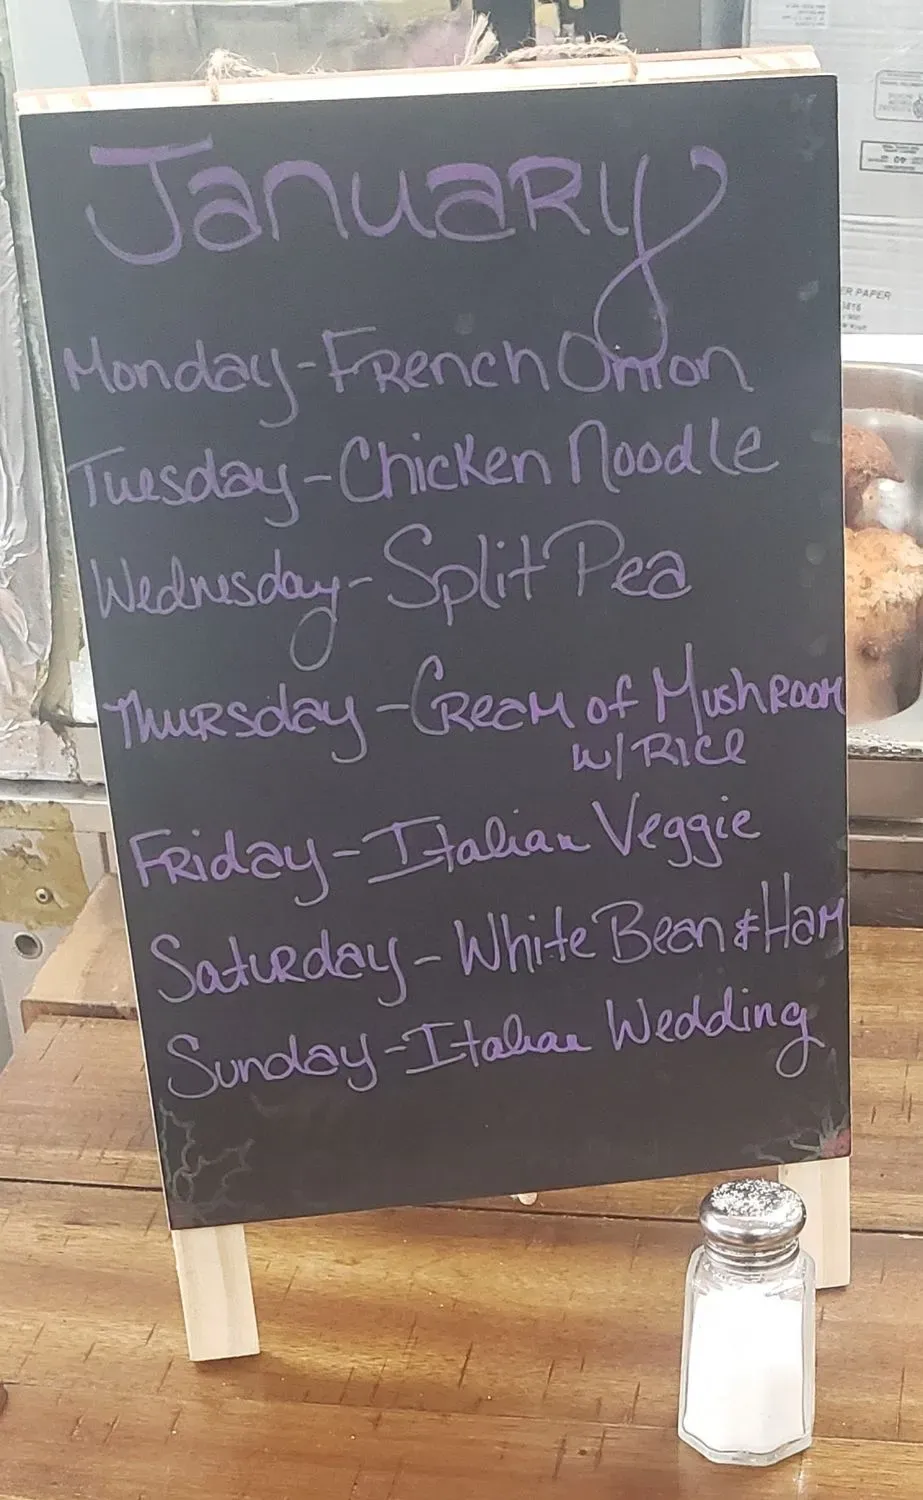 January
Monday - French Onion
Tuesday - Chicken Noodle
Wednesday - Split Pea
Thursday - Cream of Mushroom
w/ Rice
Friday - Italian Veggie
Saturday - White Bean & Ham
Sunday - Italian Wedding
ER PAPER